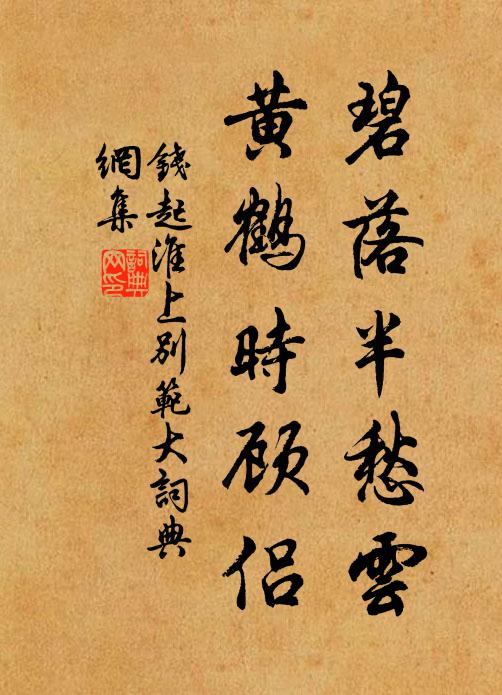 碧落半愁雲
黄鶴時顾侣
錢起淮上別範大詞典
網集
詞典
网印